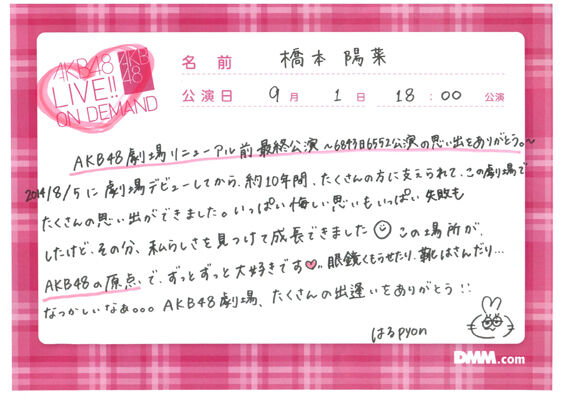 AKB48
LIVE!!
ON DEMAND
AKB
48
名前 橋本 陽菜
公演日 9月 1日 18:00 公演
AKB48劇場リニューアル前最終公演 ~6843日6552公演の思い出をありがとう。~
2014/8/5に劇場デビューしてから、約10年間、たくさんの方に支えられて、この劇場で
たくさんの思い出ができました。いっぱい悔しい思いもいっぱい失敗も
したけど、その分、私らしさを見つけて成長できました☺ この場所が、
AKB48の原点。で、ずっとずっと大好きです♥ 眼鏡くもらせたり、靴はさんだり...
なつかしいなぁ。。。AKB48劇場、たくさんの出逢いをありがとう!!
はるpyon
DMM.com